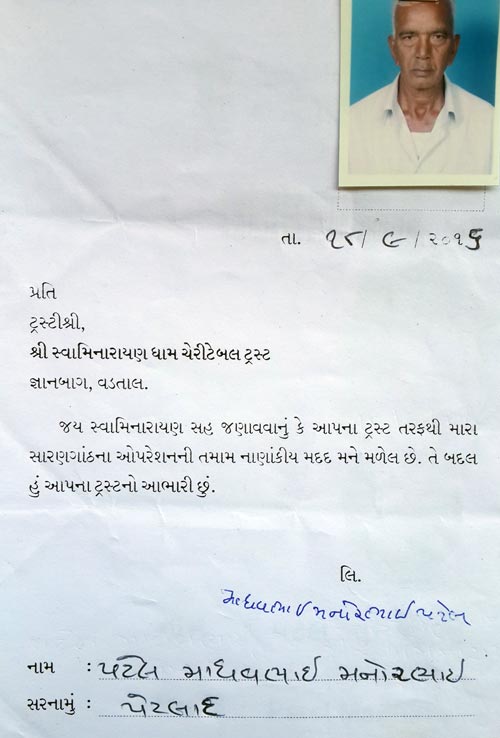 તા. ૧૮/૯/૨૦૧૬
પ્રતિ
ટ્રસ્ટીશ્રી,
શ્રી સ્વામિનારાયણ ધામ ચેરીટેબલ ટ્રસ્ટ
જ્ઞાનબાગ, વડતાલ.
જય સ્વામિનારાયણ સહ જણાવવાનું કે આપના ટ્રસ્ટ તરફથી મારા
સારણગાંઠના ઓપરેશનની તમામ નાણાંકીય મદદ મને મળેલ છે. તે બદલ
હું આપના ટ્રસ્ટનો આભારી છું.
લિ.
માધવભાઈ મનોરભાઈ પટેલ
નામ : પટેલ માધવભાઈ મનોરભાઈ
સરનામું : પેટલાદ